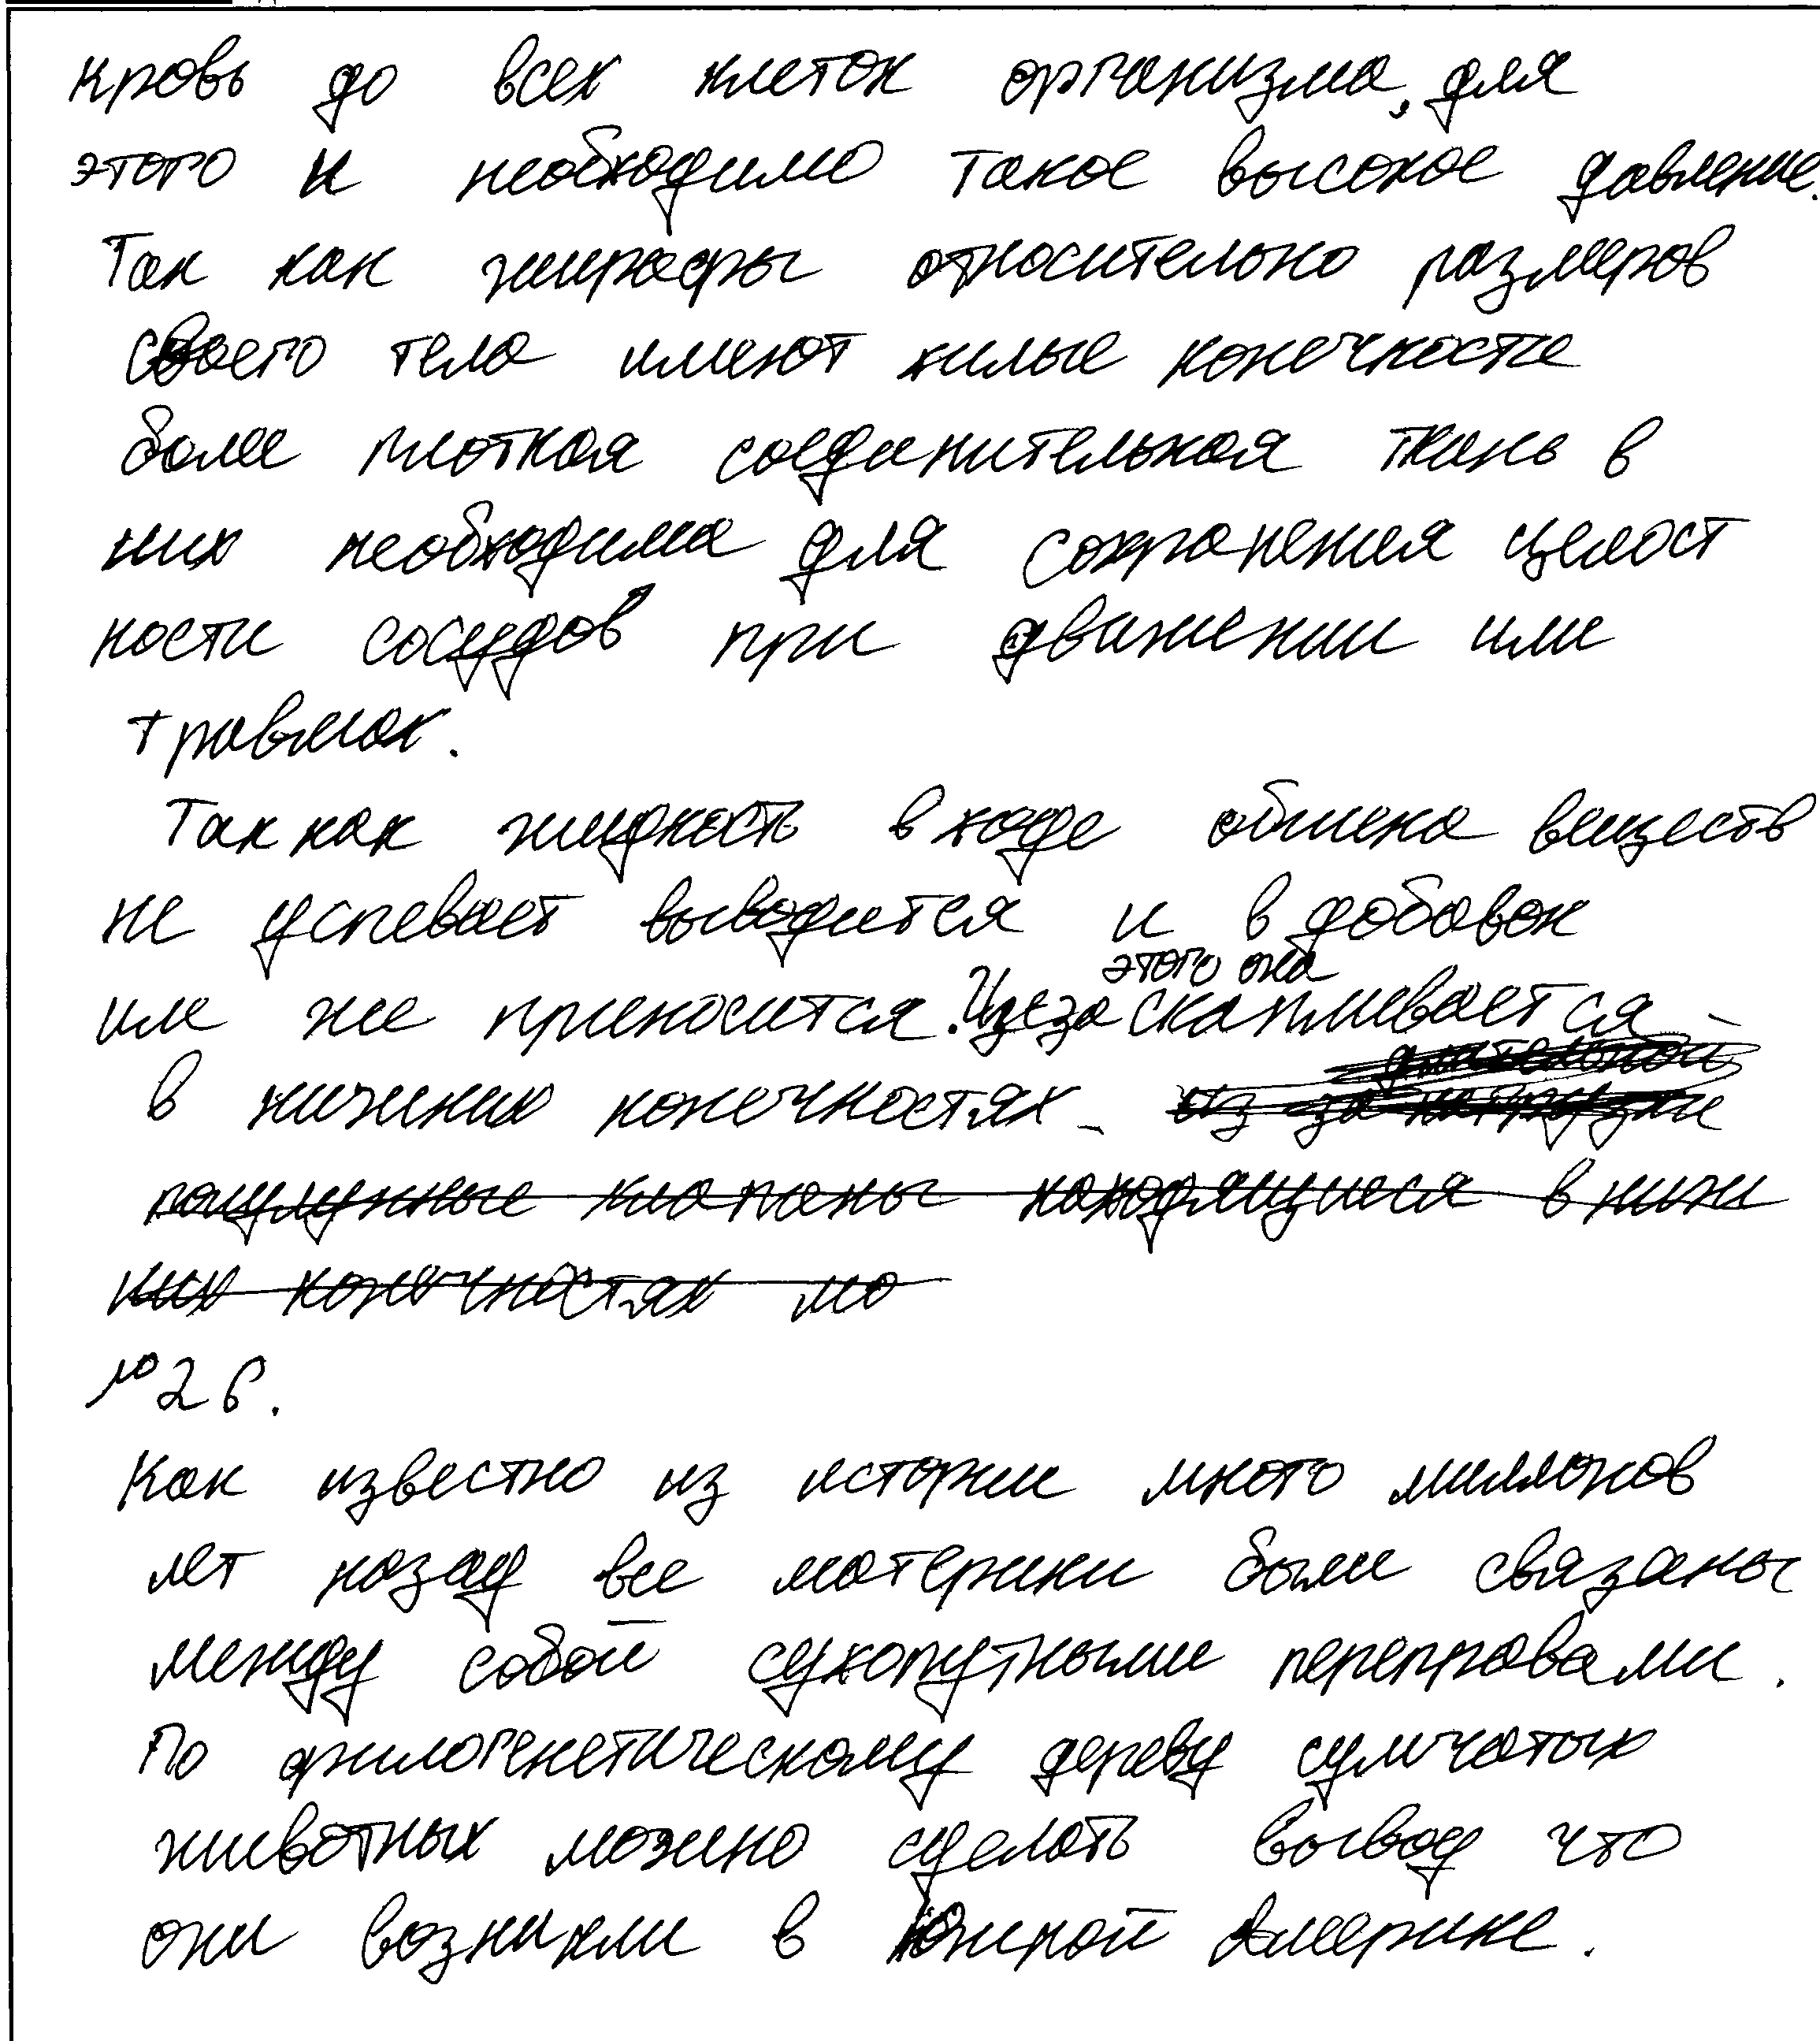 кровь до всех клеток организма, для
этого и необходимо такое высокое давление.
Так как жирафы относительно размеров
своего тела имеют хилые конечности
более плотная соединительная ткань в
них необходима для сохранения целост
ности сосудов при движении или
травмах.
Так как жидкость в ходе обмена веществ
не успевает выводится и в добавок
им же приносится. Из за этого она скапливается
в нижних конечностях
из за длительной нагрузки
полулунные клапаны находящиеся в ниж
них конечностях мо
№26.
Как известно из истории много миллионов
лет назад все материки были связаны
между собой сухопутными переправами.
По филогенетическому дереву сумчатых
животных можно сделать вывод что
они возникли в Южной Америке.